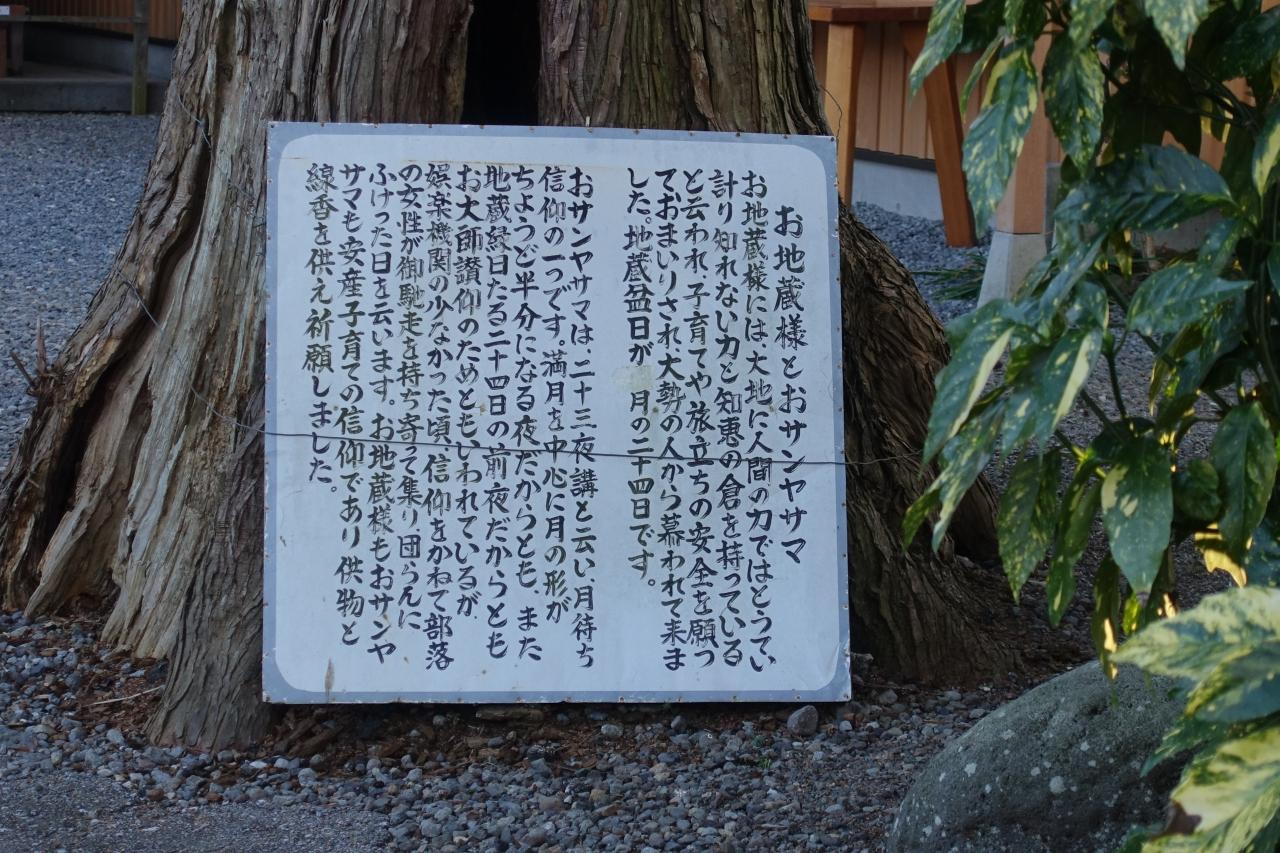 お地蔵様とおサンヤサマ
お地蔵様には大地に人間の力ではとうてい
計り知れない力と知恵の倉を持っている
と云われ、子育てや旅立ちの安全を願っ
ておまいりされ大勢の人から慕われて来ま
した。地蔵盆日が 月の二十四日です。
おサンヤサマは、二十三夜講と云い、月待ち
信仰の一つです。満月を中心に月の形が
ちようど半分になる夜だからとも、また
地蔵縁日たる二十四日の前夜だからとも
お大師讃仰のためともいわれているが
娯楽機関の少なかった頃、信仰をかねて部落
の女性が御馳走を持ち寄って集り団らんに
ふけった日を云います。お地蔵様もおサンヤ
サマも安産子育ての信仰であり供物と
線香を供え祈願しました。